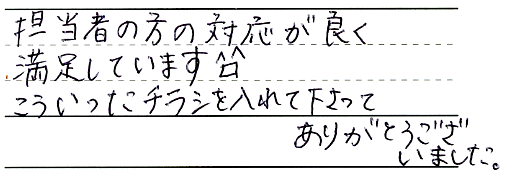 担当者の方の対応が良く
満足しています^^
こういったチラシを入れて下さって
ありがとうござ
いました。